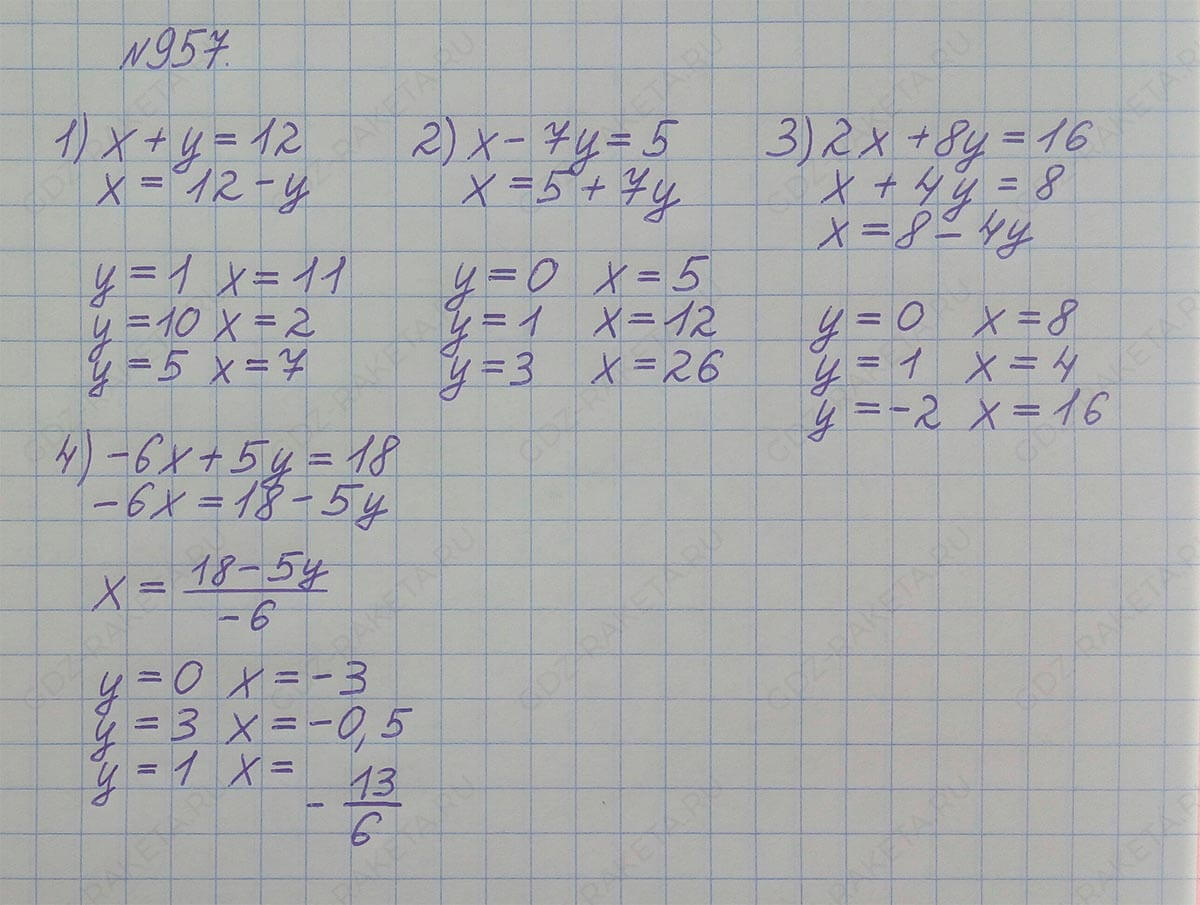 №957.
1) x + y = 12
x = 12 - y
y = 1 x = 11
y = 10 x = 2
y = 5 x = 7
2) x - 7y = 5
x = 5 + 7y
y = 0 x = 5
y = 1 x = 12
y = 3 x = 26
3) 2x + 8y = 16
x + 4y = 8
x = 8 - 4y
y = 0 x = 8
y = 1 x = 4
y = -2 x = 16
4) -6x + 5y = 18
-6x = 18 - 5y
x = (18 - 5y)/(-6)
y = 0 x = -3
y = 3 x = -0,5
y = 1 x = -13/6
GDZ-RAKETA.RU